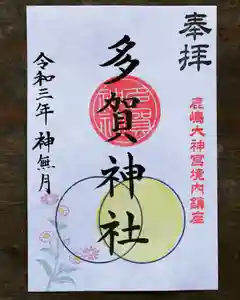 奉拝
鹿嶋大神宮境内鎮座
多賀神社
令和三年 神無月